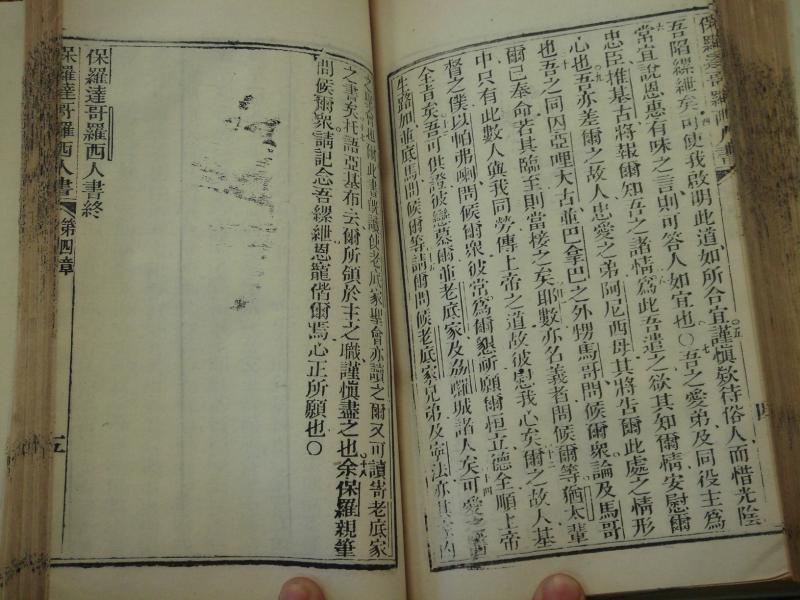 保羅達哥羅西人書
吾陷縲絏矣可使我啟明此道如所合宜謹慎欵待俗人而惜光陰
常宜說恩惠有味之言則可答人如宜也○吾之愛弟及同役主為
忠臣推基古將報爾知吾之諸情為此吾遣之欲其知爾情安慰爾
心也吾亦差爾之故人忠愛之弟阿尼西母其將告爾此處之情形
也吾之同囚亞哩大古並巴拿巴之外甥馬哥問候爾衆論及馬哥
爾已奉命若其臨至則當接之矣耶數亦名義者問候爾等猶太輩
中只有此數人與我同勞傳上帝之道故彼慰我心矣爾之故人基
督之僕以帕弗喇問候爾衆彼常為爾懇祈願爾恒立德全順上帝
全旨矣吾可供證彼戀慕爾並老底家及勐囉城諸人矣可愛之
生路加並底馬問候爾等請爾問候老底家兄弟及
聖會也爾此書既讀使老底家聖會亦讀之爾又可讀寄老底家
之書矣托語亞基布云爾所領於主之職謹慎盡之也余保羅親筆
問候爾衆請記念吾縲絏恩寵偕爾焉心正所願也○
保羅達哥羅西人書終
保羅達哥羅西人書 第四章